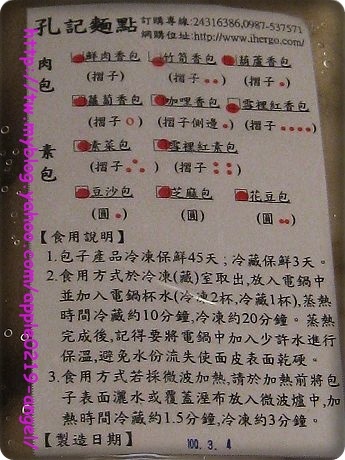 孔記麵點 訂購專線:24316386,0987-537571
網購位址:http://www.ihergo.com/
肉包
鮮肉香包 竹筍香包 葫蘆香包
(摺子) (摺子 ●●) (摺子 ●)
蘿蔔香包 咖哩香包 雪裡紅香包
(摺子 ○) (摺子側邊 ●) (摺子 ●●●●)
素包
素菜包 雪裡紅素包
(摺子 ) (摺子 )
豆沙包 芝麻包 花豆包
(圓 ●) (圓) (圓 ●●)
【食用說明】
1.包子產品冷凍保鮮45天;冷藏保鮮3天。
2.食用方式於冷凍(藏)室取出,放入電鍋中
並加入電鍋杯水(冷凍2杯,冷藏1杯),蒸熱
時間冷藏約10分鐘,冷凍約20分鐘。蒸熱
完成後,記得要將電鍋中加入少許水進行
保溫,避免水份流失使面皮表面乾硬。
3.食用方式若採微波加熱,請於加熱前將包
子表面灑水或覆蓋溼布放入微波爐中,加
熱時間冷藏約1.5分鐘,冷凍約3分鐘。
【製造日期】 100. 3. 4